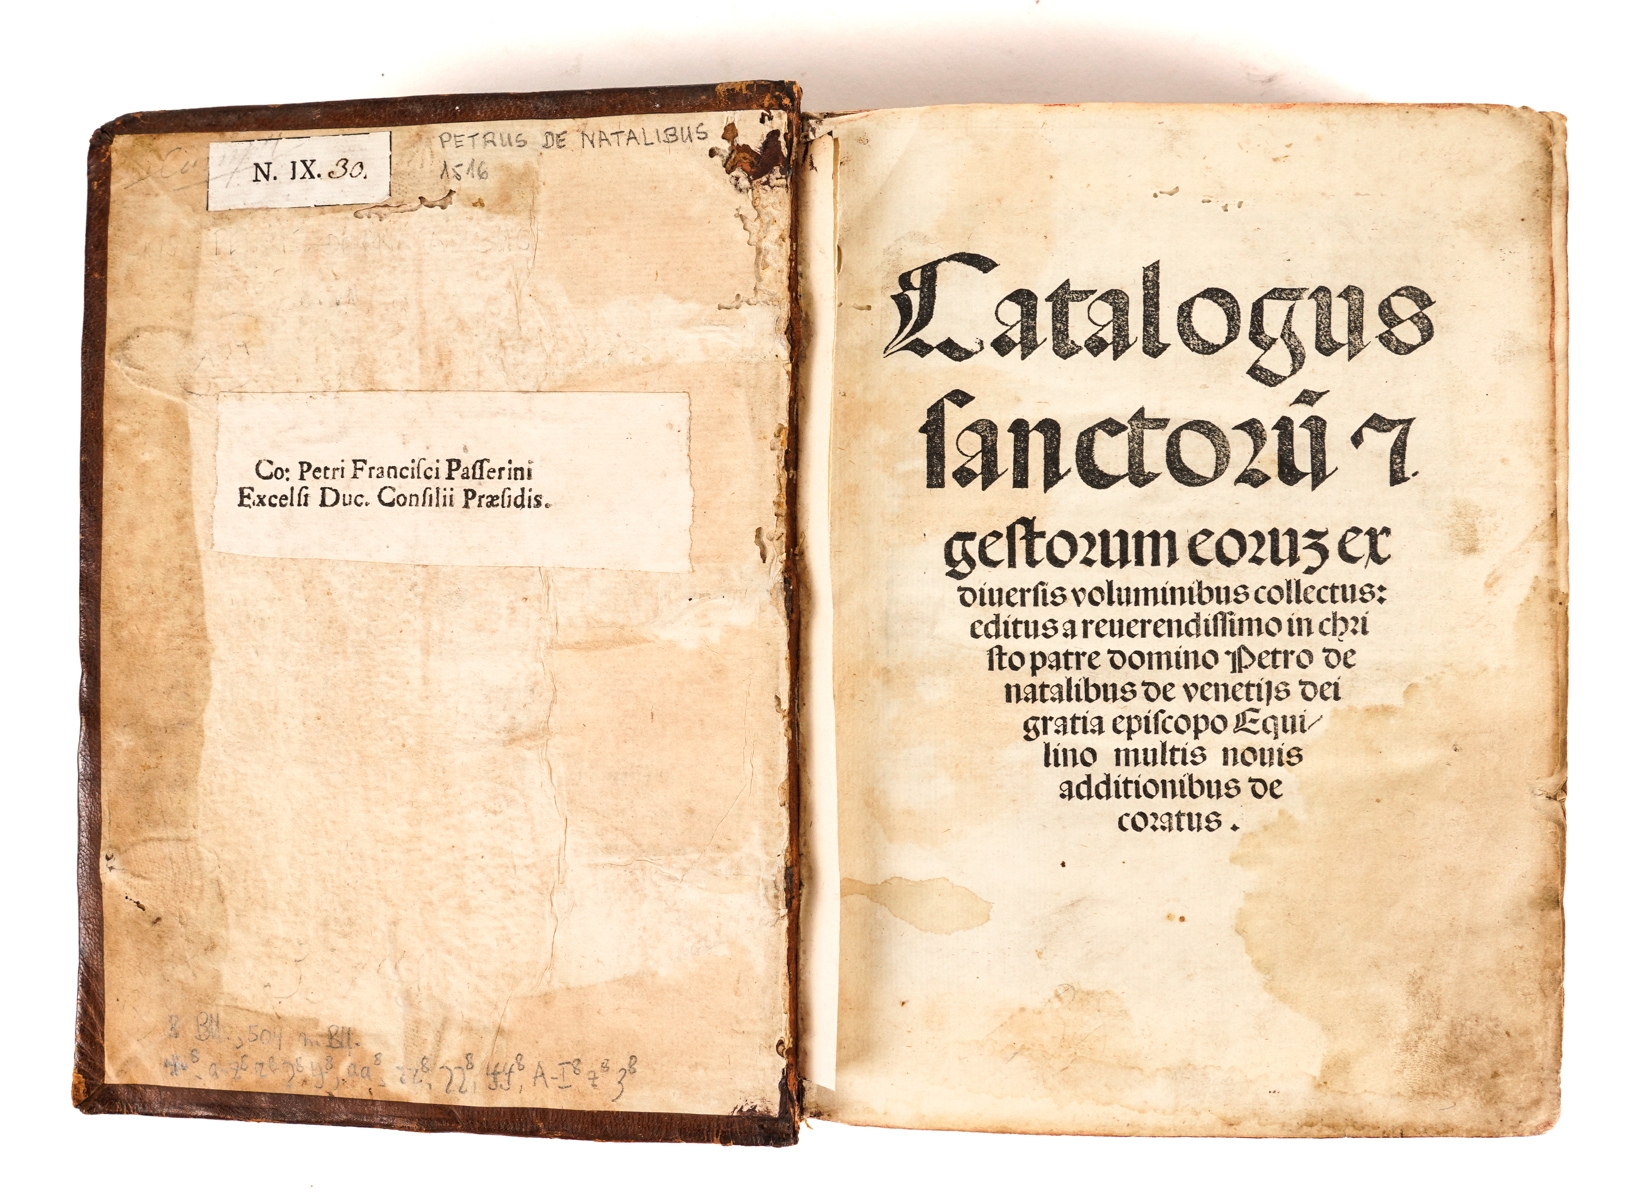 N. IX. 30.
PETRUS DE NATALIBUS
1516
Co: Petri Franciſci Paſſerini
Excelſi Duc. Conſilii Præſidis.
8 Bll., 504 n. Bll.
Catalogus
ſanctorū ⁊
geſtorum eoruꝫ ex
diuerſis voluminibus collectus:
editus a reuerendiſſimo in chri
ſto patre domino Petro de
natalibus de venetijs dei
gratia epiſcopo Equi/
lino multis nouis
additionibus de
coratus.